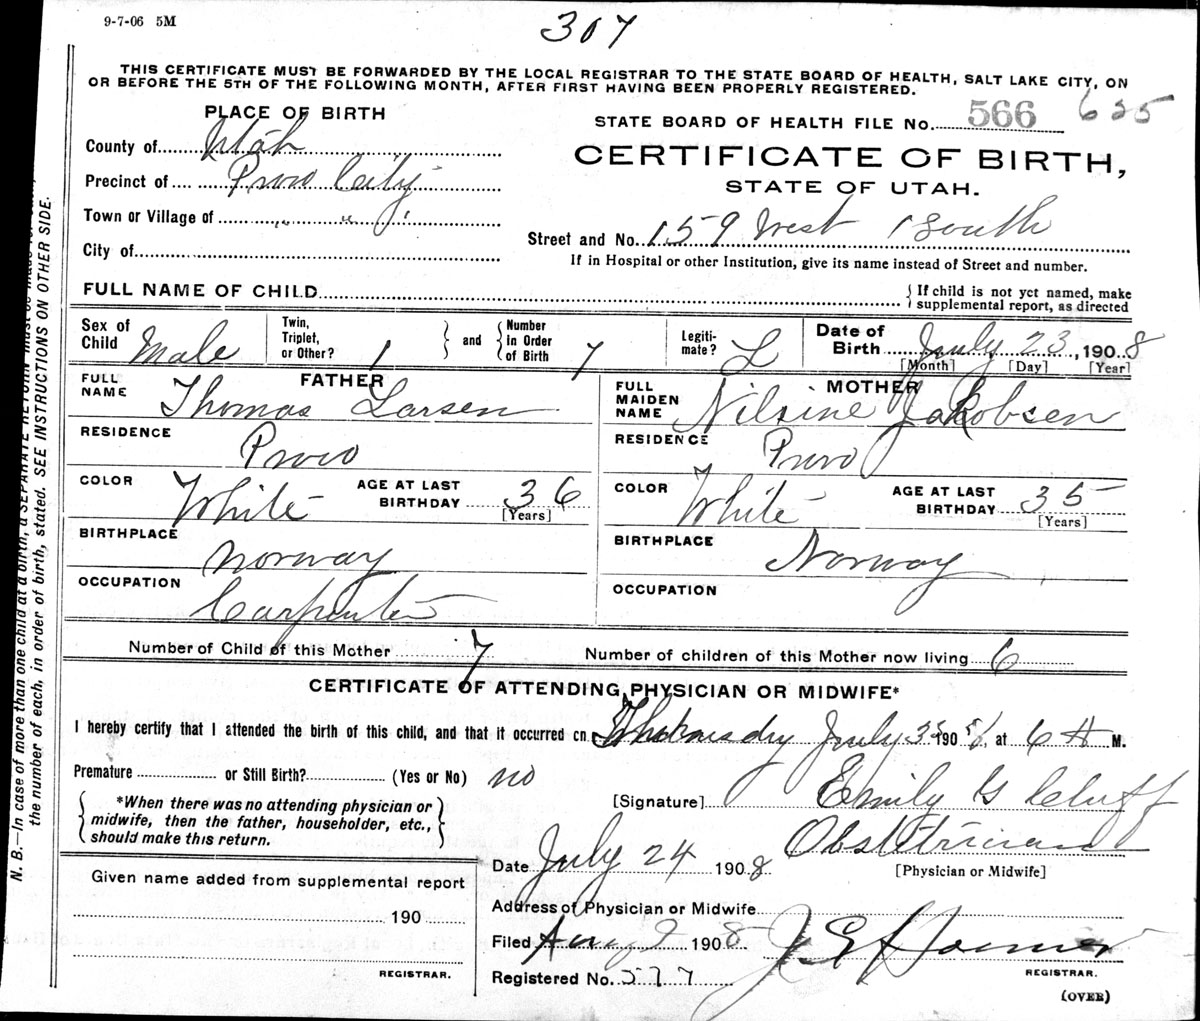 9-7-06 5M
307
THIS CERTIFICATE MUST BE FORWARDED BY THE LOCAL REGISTRAR TO THE STATE BOARD OF HEALTH, SALT LAKE CITY, ON
OR BEFORE THE 5TH OF THE FOLLOWING MONTH, AFTER FIRST HAVING BEEN PROPERLY REGISTERED.
PLACE OF BIRTH
STATE BOARD OF HEALTH FILE No. 566 625
County of Utah
CERTIFICATE OF BIRTH,
Precinct of Provo City
STATE OF UTAH.
Town or Village of " "
Street and No. 159 West 1 South
City of
If in Hospital or other Institution, give its name instead of Street and number.
FULL NAME OF CHILD
{ If child is not yet named, make
supplemental report, as directed
Sex of Child Male
Twin, Triplet, or Other? 1 } and { Number in Order of Birth 7
Legiti-mate? L
Date of Birth July 23, 1908
[Month] [Day] [Year]
FATHER
FULL NAME Thomas Larsen
RESIDENCE Provo
COLOR White
AGE AT LAST BIRTHDAY 36
[Years]
BIRTHPLACE Norway
OCCUPATION Carpenter
MOTHER
FULL MAIDEN NAME Nilsine Jakobsen
RESIDENCE Provo
COLOR White
AGE AT LAST BIRTHDAY 35
[Years]
BIRTHPLACE Norway
OCCUPATION
Number of Child of this Mother 7
Number of children of this Mother now living 6
CERTIFICATE OF ATTENDING PHYSICIAN OR MIDWIFE*
I hereby certify that I attended the birth of this child, and that it occurred on July 190 at 6 A M.
Premature or Still Birth? (Yes or No) no
{ *When there was no attending physician or
midwife, then the father, householder, etc.,
should make this return. }
[Signature] Emily G Cluff
Obstetrician
[Physician or Midwife]
Date July 24 1908
Given name added from supplemental report
190
REGISTRAR.
Address of Physician or Midwife
Filed Aug 2 1908
J E Hosmer
REGISTRAR.
Registered No. 577
(OVER)
N. B.—In case of more than one child at a birth, a SEPARATE RETURN must be made
the number of each, in order of birth, stated. SEE INSTRUCTIONS ON OTHER SIDE.